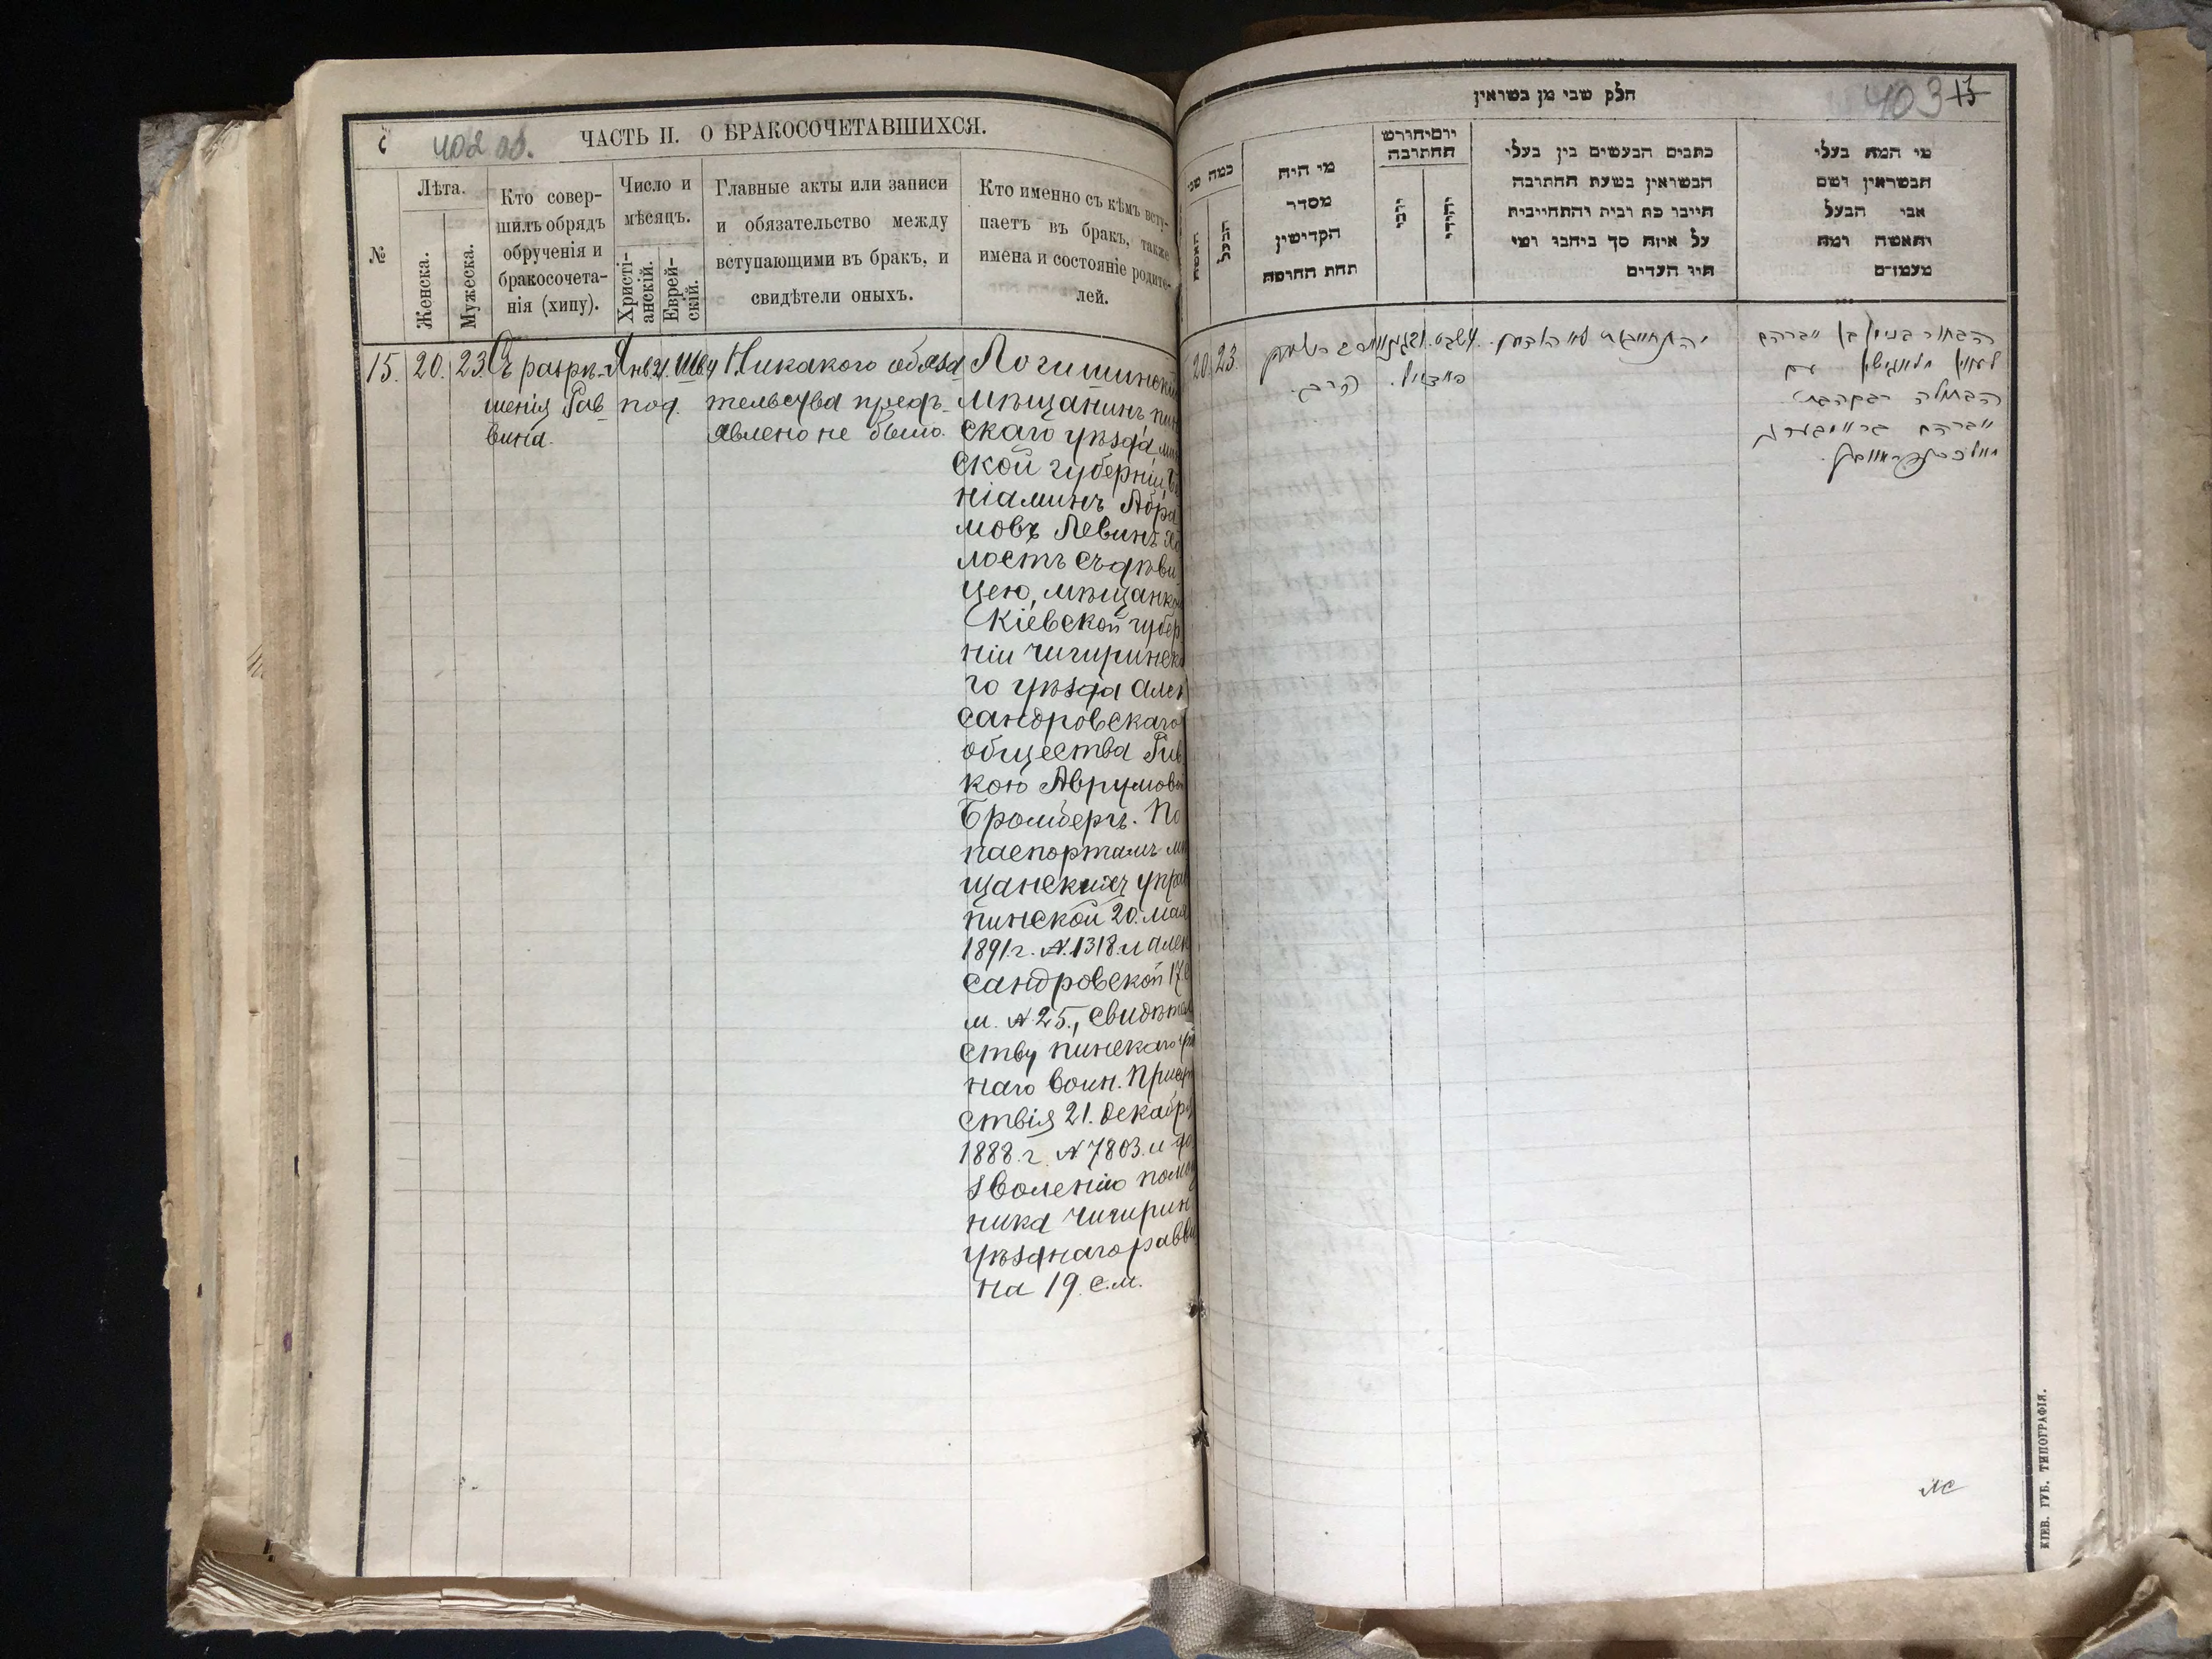 402 об.
ЧАСТЬ II. О БРАКОСОЧЕТАВШИХСЯ.
№
Лѣта.
Женска.
Мужеска.
Кто совер-
шилъ обрядъ
обрученія и
бракосочета-
нія (хипу).
Число и
мѣсяцъ.
Христі-
анскій.
Еврей-
скій.
Главные акты или записи
и обязательство между
вступающими въ бракъ, и
свидѣтели оныхъ.
Кто именно съ кѣмъ всту-
паетъ въ бракъ, также
имена и состояніе родите-
лей.
15.
20.
23.
Съ разрѣ-
шенія Рав
вина.
Янв
21.
под.
Никакого обяза
тельства предъ-
явлено не было.
Логишинскій
мѣщанинъ, пин
скаго уѣзда, мин
ской губерніи, Ве
ніаминъ Абра
мовъ Левинъ хо
лостъ съ дѣви
цею, мѣщанкою
Кіевской губер
ніи чигиринска
го уѣзда алек
сандровскаго
общества Рив
кою Аврумовой
Бромбергъ. По
паспортамъ мѣ
щанскихъ управ
пинской 20. мая
1891.г. N.1318. и алек
сандровской 17 с
м. N 25., свидѣтель
ству пинскаго уѣзд
наго воин. Присут
ствія 21. декабря
1888.г. N 7803. и до
зволенію помощ
ника чигирин
уѣзднаго равви
на 19. с.м.
חלק שני מן נשואין
403
13
כמה שני
האשה
הבעל
מי היה
מסדר
הקדושין
תחת החופה
יום וחודש
החתונה
נוצרי
יהודי
כתבים הנעשים בין בעלי
הנשואין בשעת החתונה
חייבו כת ובית והתחייבות
על איזה סך ביחבו ומי
היו העדים
מי המה בעלי
הנשואין ושם
אבי הבעל
והאשה ומה
מעמדם
20.
23.
הרב.
21
שבט.
הבחור בנימן בן אברהם
לעווין
עם
הבתולה רבקה בת
אברהם
КІЕВ. ГУБ. ТИПОГРАФІЯ.